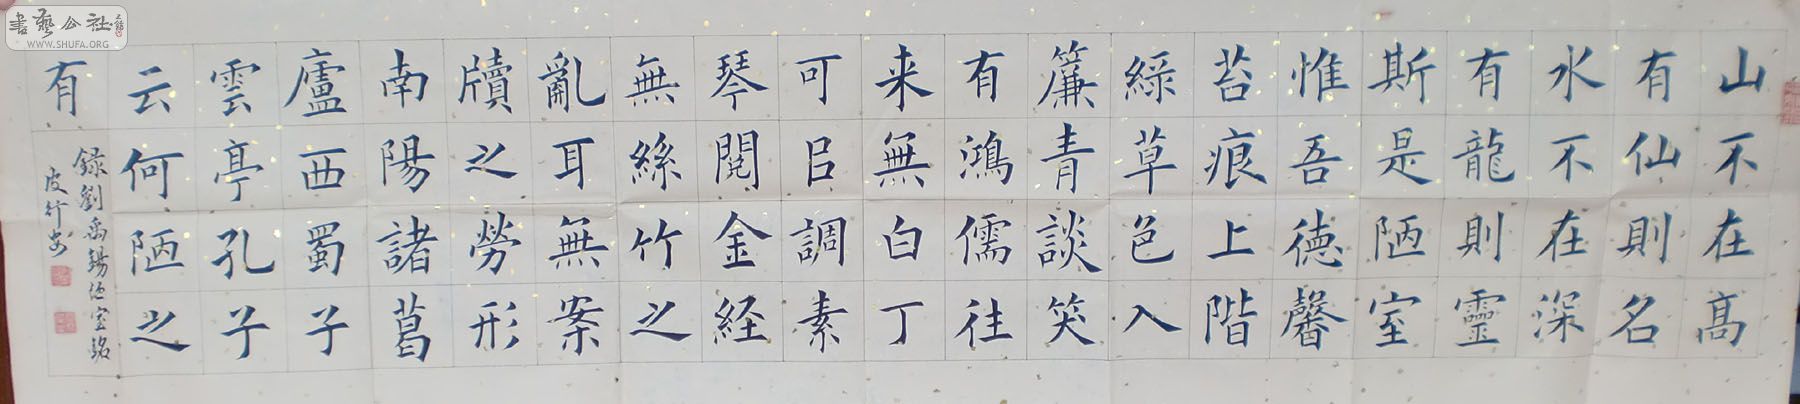 山不在高
有仙則名
水不在深
有龍則靈
斯是陋室
惟吾德馨
苔痕上階
綠草色入
簾青談笑
有鴻儒往
来無白丁
可㠯調素
琴閱金経
無絲竹之
亂耳無案
牘之勞形
南陽諸葛
廬西蜀子
雲亭孔子
云何陋之
有
錄劉禹錫陋室銘
皮竹
書藝公社
WWW.SHUFA.ORG